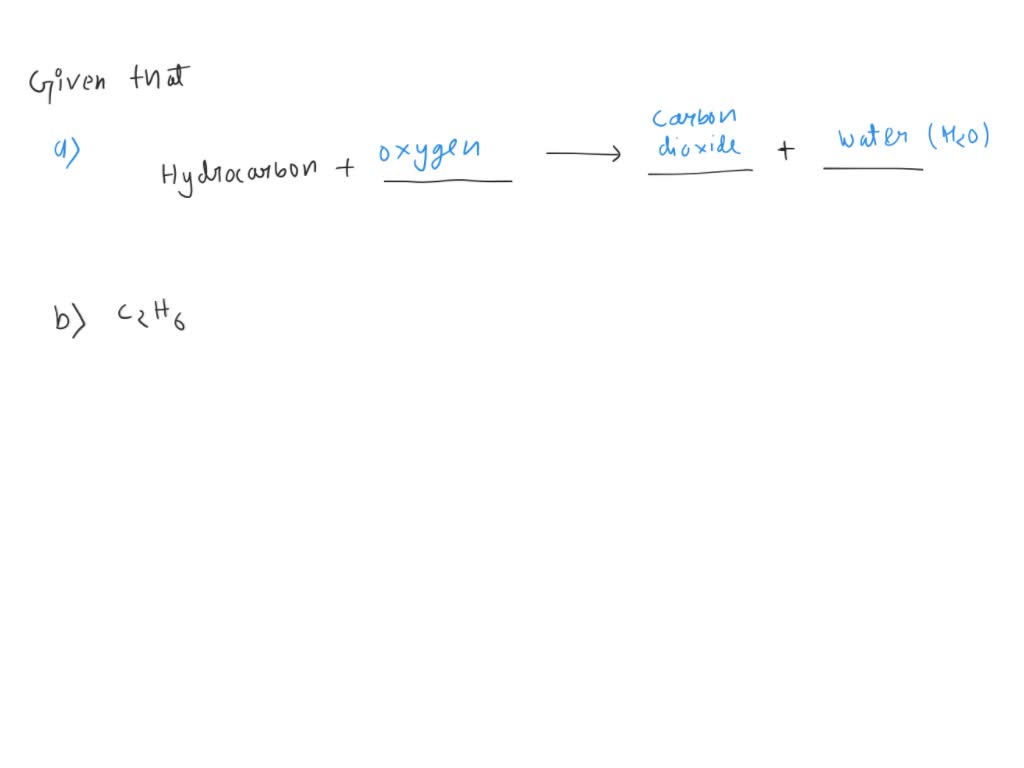 Given that
a) Hydrocarbon + oxygen ⟶ carbon dioxide + water (H2O)
b) C2H6